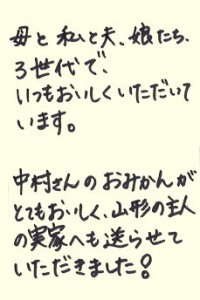 母と私と夫、娘たち、
3世代で、
いつもおいしくいただいて
います。
中村さんのおみかんが
とてもおいしく、山形の主人
の実家へも送らせて
いただきました!